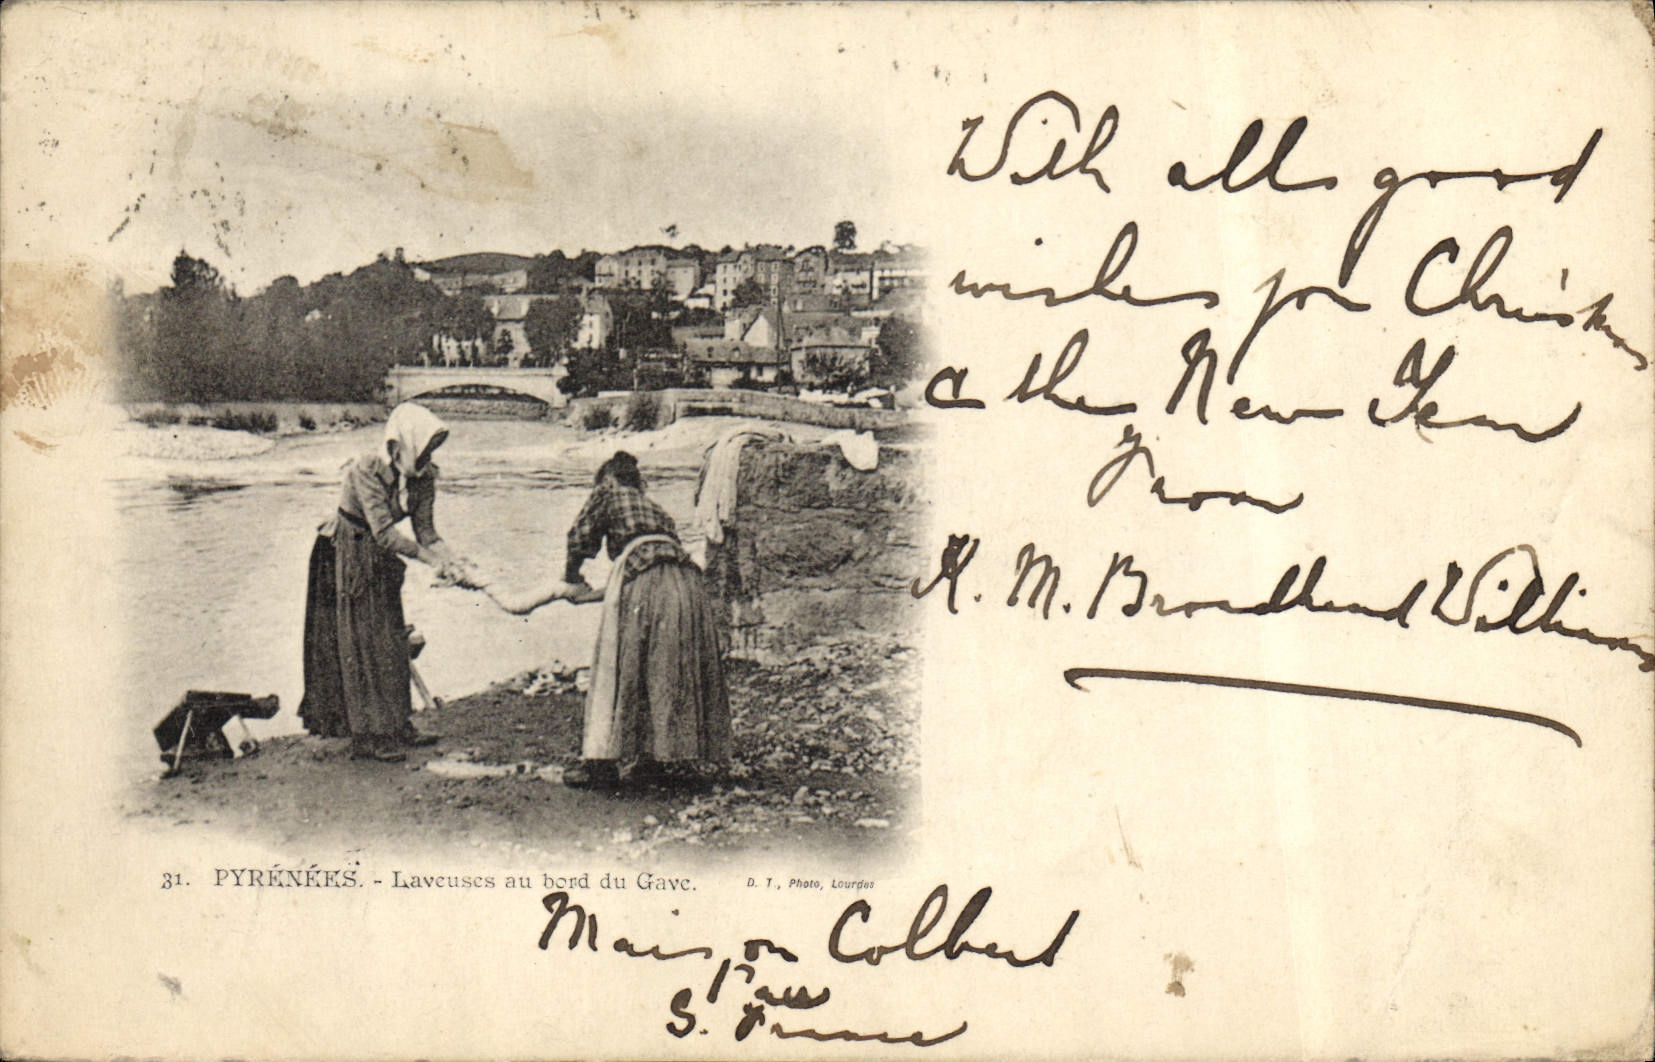 With all good
wishes for Christmas
& the New Year
from
K. M. Broadhead Williams
31. PYRÉNÉES. - Laveuses au bord du Gave.
D. T., Photo, Lourdes
Maison Colbert
Pau
S. France